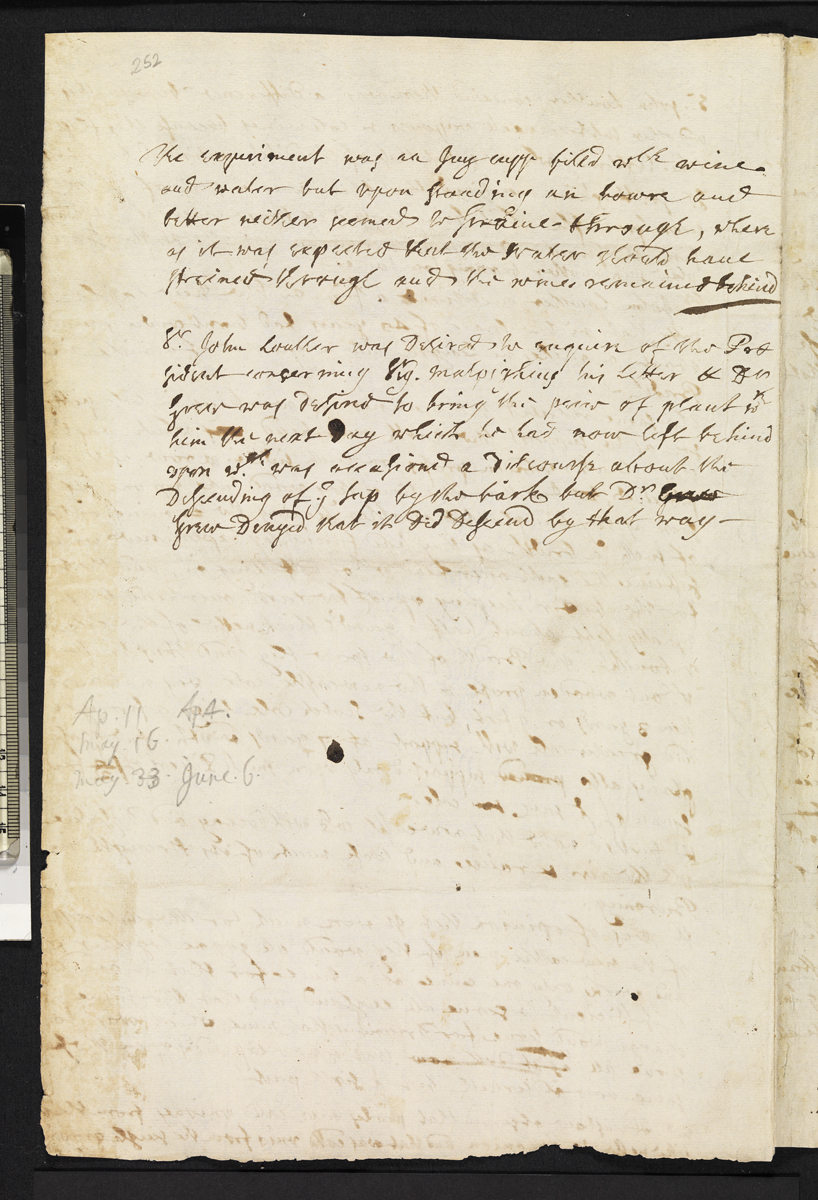 252
The experiment was an Iuy cupp filled wth wine
and water but vpon standing an howre and
better neither seemed to straine through, where
as it was expected that the water should haue
streined through and the wine remained behind
Sr. John was Desired to enquire of the Pre
sident concerning Sig. Malpighius his letter & Dr
Grew was desired to bring the peice of plant wth
him the next Day which he had now left behind
vpon wch. was occasioned a Discourse about the
Descending of ye sap by the bark but Dr. Grew
Grew Denyed that it Did Descend by that way –
Ap. 11. Ap 4.
May. 16
May. 23. June. 6.